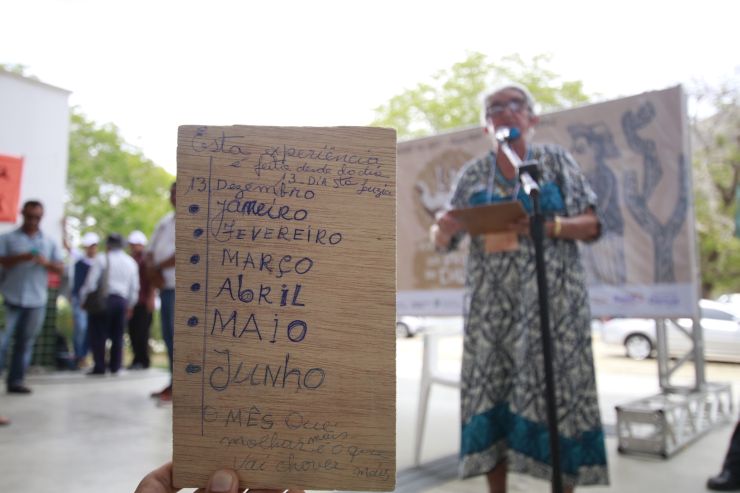 Esta experiência
é feita desde do dia
13 DIA Sta Luzia
Dezembro
Janeiro
FEVEREIRO
MARÇO
AbRiL
MAIO
JUNHO
O MÊS Que
mais
molhar é o que
vai chover mais